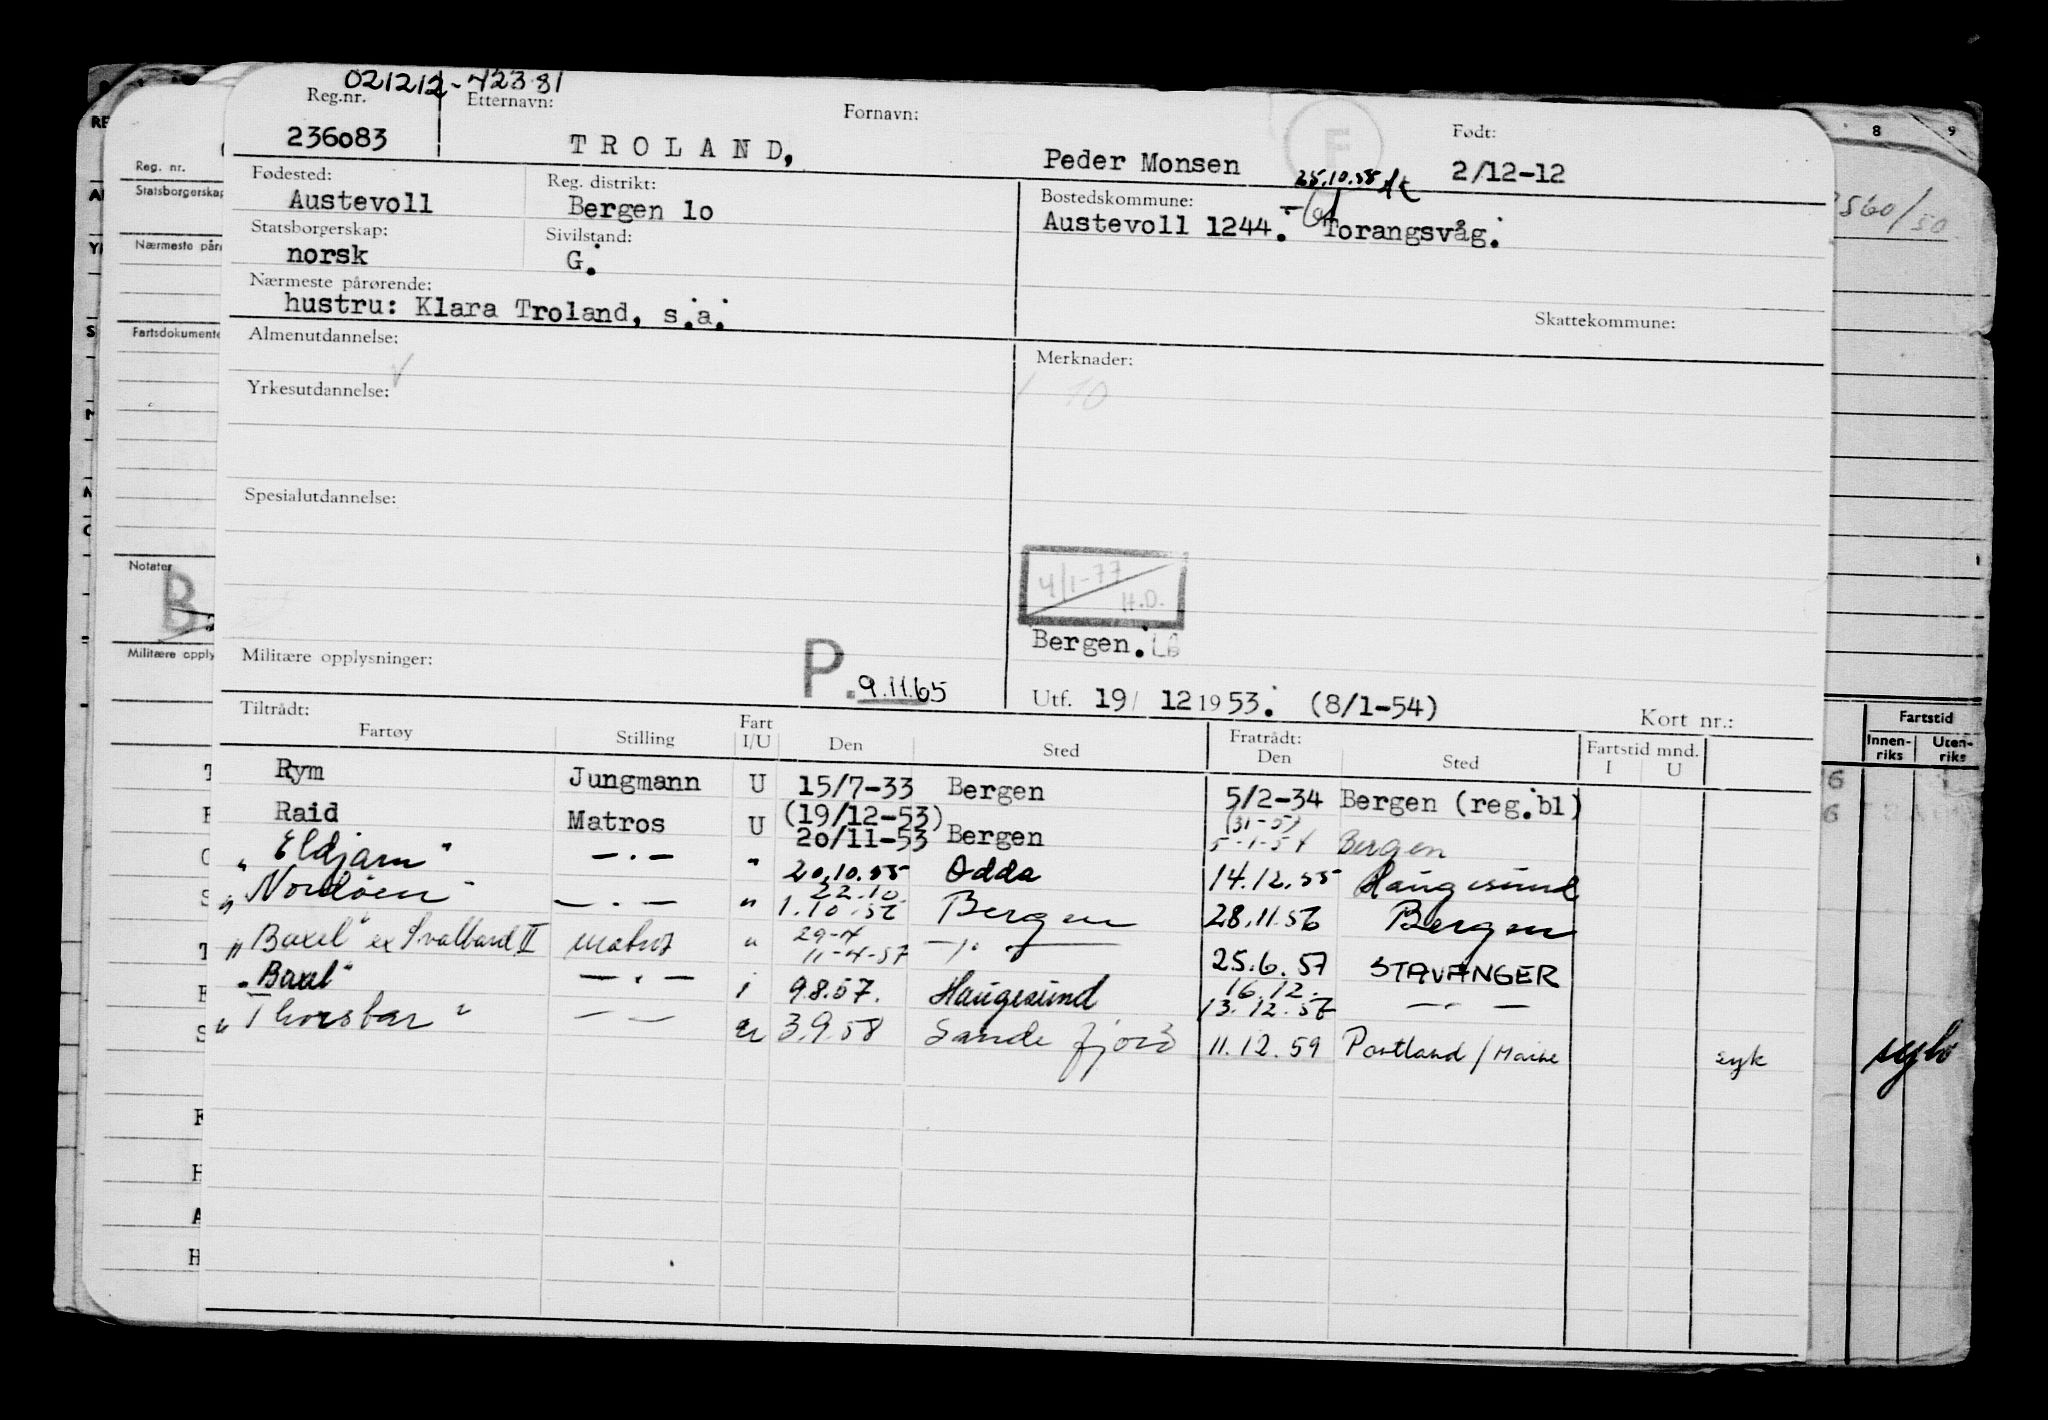 021212-42381
Reg.nr. Etternavn: Fornavn: Født:
236083 TROLAND, Peder Monsen F 2/12-12
Fødested: Reg. distrikt: Bostedskommune: 25.10.58
Austevoll Bergen lo Austevoll 1244. Torangsvåg.
Statsborgerskap: Sivilstand:
norsk G.
Nærmeste pårørende:
hustru: Klara Troland, s.a.
Skattekommune:
Almenutdannelse: Merknader:
Yrkesutdannelse: 10
Spesialutdannelse:
4/1-77
H.O.
Bergen. LB
Militære opplysninger: P. 9.11.65
Utf. 19/ 12 1953. (8/1-54) Kort nr.:
Tiltrådt: Fratrådt: Fartstid mnd.
Fartøy Stilling Fart I/U Den Sted Den Sted I U
Rym Jungmann U 15/7-33 Bergen 5/2-34 Bergen (reg.bl)
Raid Matros U (19/12-53) 20/11-53 Bergen Bergen
"Eldjarn" —.— " 20.10.55 Odda 14.12.55 Haugesund
"Nordøen" —.— " 22.10. 1.10.56 Bergen 28.11.56 Bergen
"Baxel" ex Svalbard II matros " 29-4 11-4-57 —"— 25.6.57 STAVANGER
"Baxel" —.— i 9.8.57. Haugesund 16.12. 13.12.56 —.—
"Thorsbar" — — u 3.9.58 Sandefjord 11.12.59 Portland/Maine syk
Reg. nr.
Nærmeste
Notater
B
8 9
560/50
Fartstid
Innen-riks Uten-riks
6
6